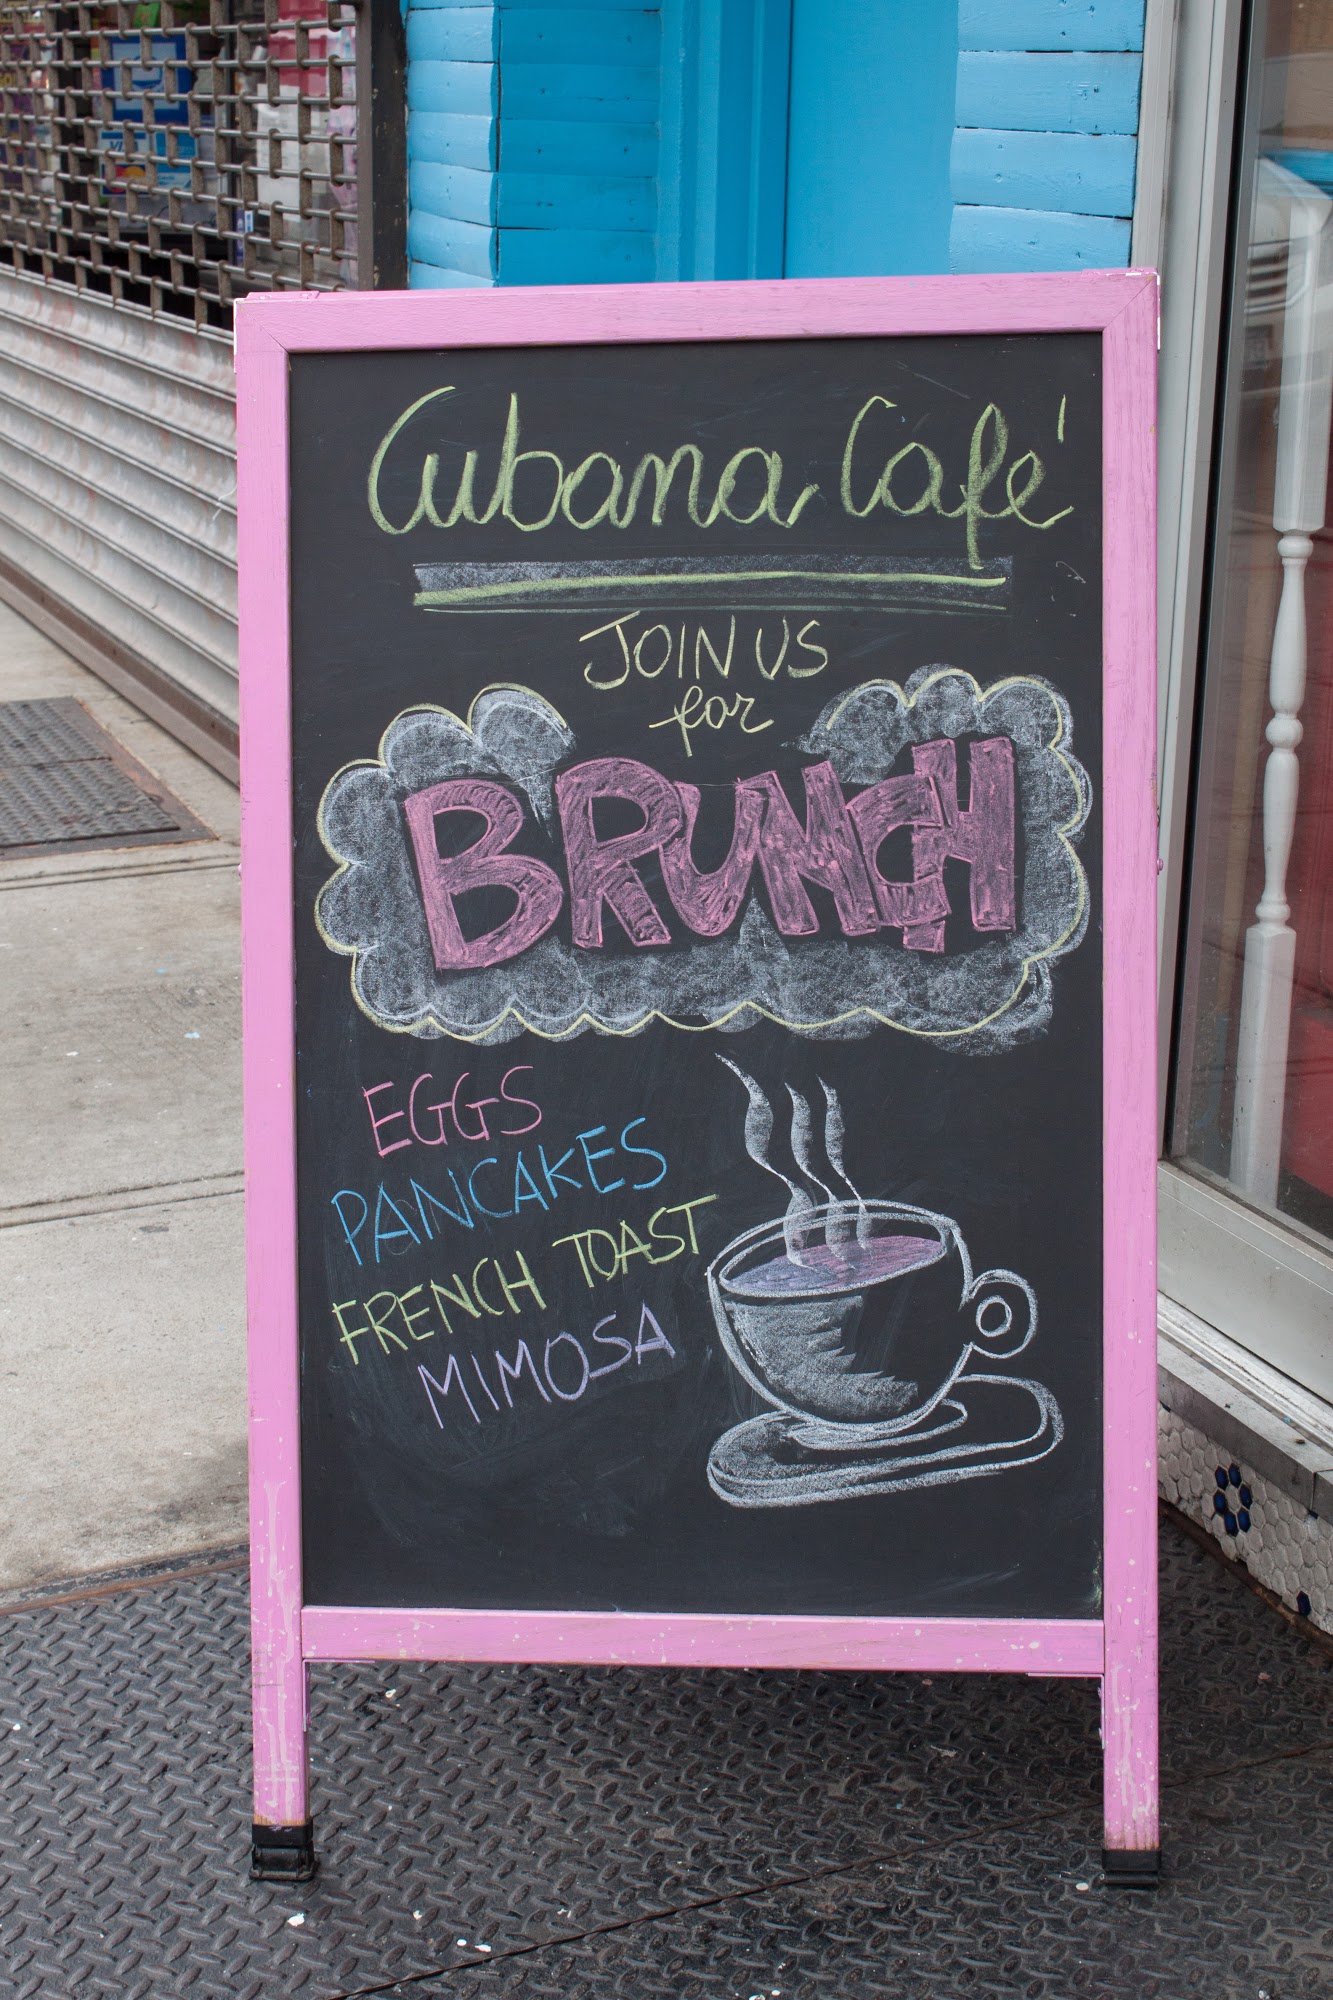 VISA
Cubana Café
JOIN US
for
BRUNCH
EGGS
PANCAKES
FRENCH TOAST
MIMOSA